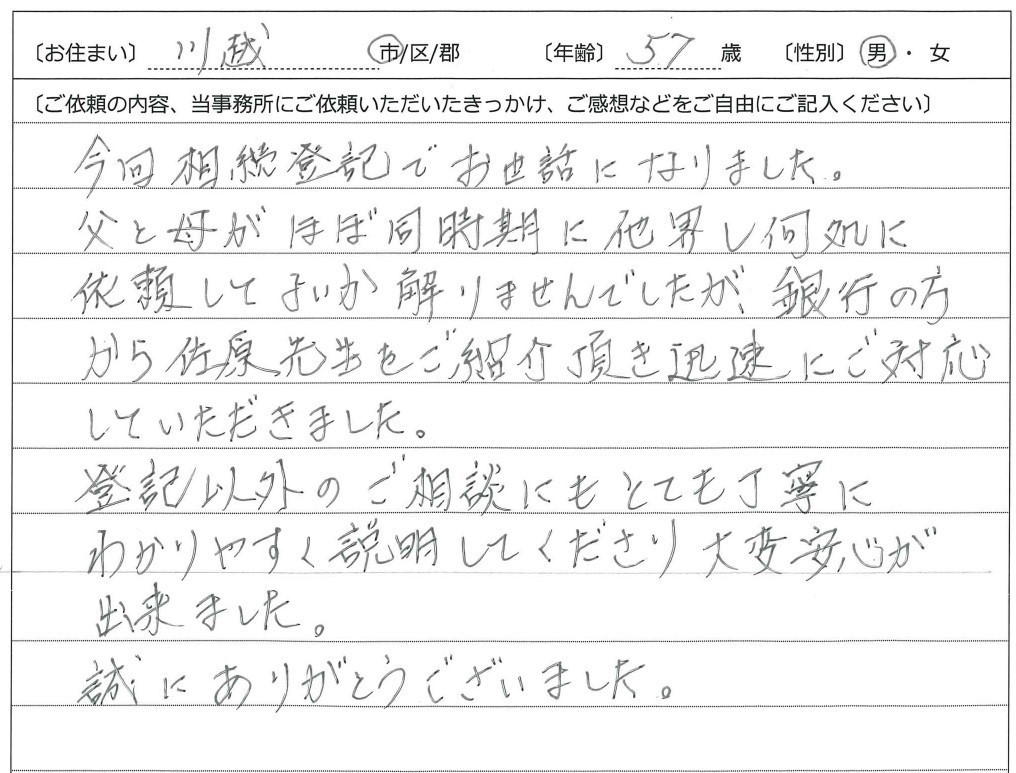 〔お住まい〕 川越 市/区/郡 〔年齢〕 57 歳 〔性別〕 男・女
〔ご依頼の内容、当事務所にご依頼いただいたきっかけ、ご感想などをご自由にご記入ください〕
今回相続登記でお世話になりました。
父と母がほぼ同時期に他界し何処に
依頼してよいか解りませんでしたが、銀行の方
から佐原先生をご紹介頂き迅速にご対応
していただきました。
登記以外のご相談にもとても丁寧に
わかりやすく説明してくださり大変安心が
出来ました。
誠にありがとうございました。